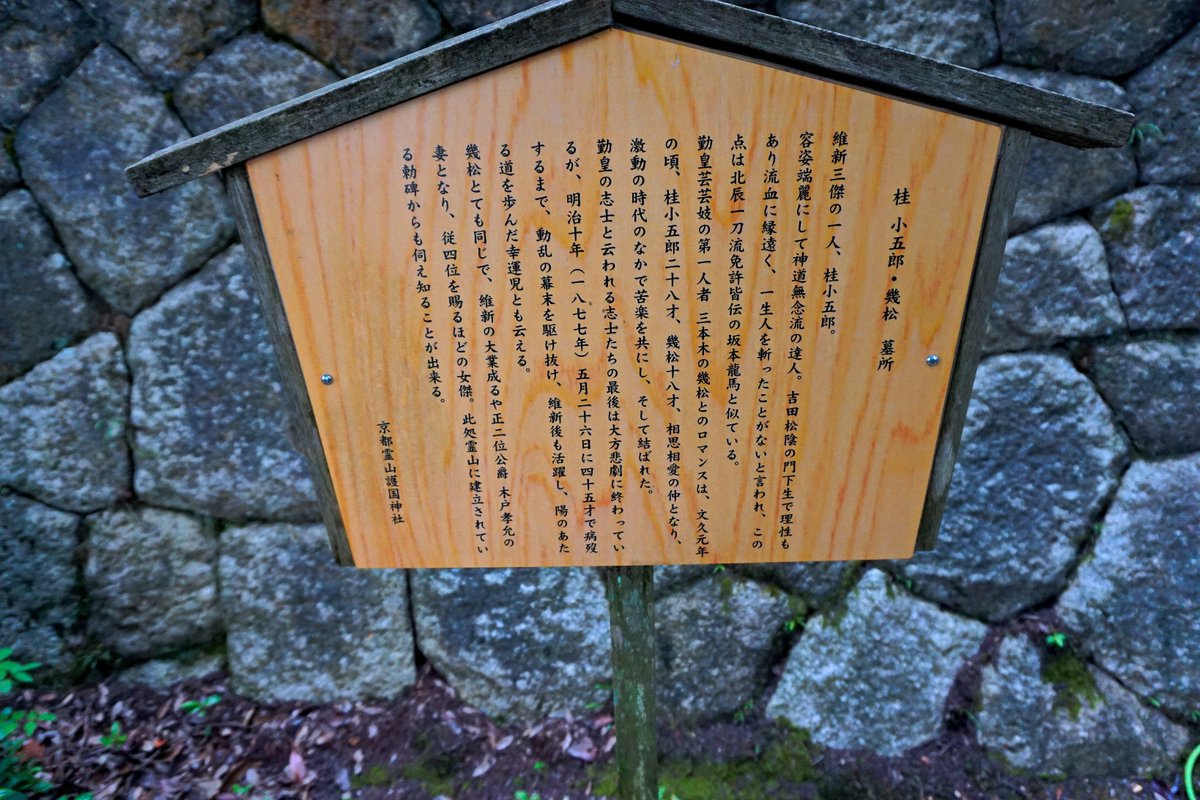 桂 小五郎・幾松 墓所
維新三傑の一人、桂小五郎。
容姿端麗にして神道無念流の達人。吉田松陰の門下生で理性も
あり流血に縁遠く、一生人を斬ったことがないと言われ、この
点は北辰一刀流免許皆伝の坂本龍馬と似ている。
勤皇芸芸妓の第一人者 三本木の幾松とのロマンスは、文久元年
の頃、桂小五郎二十八才、幾松十八才、相思相愛の仲となり、
激動の時代のなかで苦楽を共にし、そして結ばれた。
勤皇の志士と云われる志士たちの最後は大方悲劇に終わってい
るが、明治十年(一八七七年)五月二十六日に四十五才で病歿
するまで、動乱の幕末を駆け抜け、維新後も活躍し、陽のあた
る道を歩んだ幸運児とも云える。
幾松とても同じで、維新の大業成るや正二位公爵 木戸孝允の
妻となり、従四位を賜るほどの女傑。此処霊山に建立されてい
る勅碑からも伺え知ることが出来る。
京都霊山護国神社